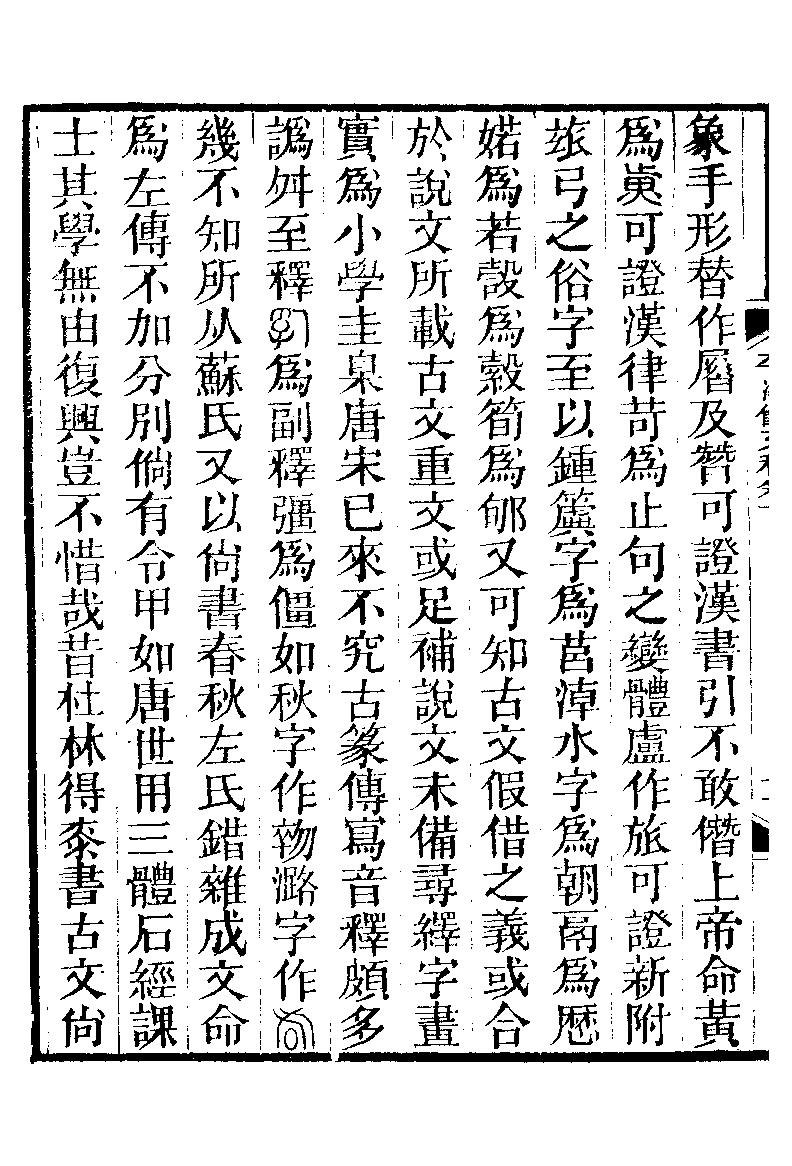 象手形替作㬱及朁可證漢書引不敢僭上帝命黃
爲寅可證漢律苛爲止句之變體盧作旅可證新附
玈弓之俗字至以鍾簴字爲莒淖水字爲朝鬲爲厯
婼爲若㱿爲穀筍爲郇又可知古文假借之義或合
於說文所載古文重文或足補說文未備尋繹字畫
實爲小學圭臬唐宋已來不究古篆傳寫音釋頗多
譌舛至釋爲副釋彊爲僵如秋字作物潞字作
幾不知所从蘇氏又以尙書春秋左氏錯雜成文命
爲左傳不加分別倘有令甲如唐世用三體石經課
士其學無由復興豈不惜哉昔杜林得桼書古文尙